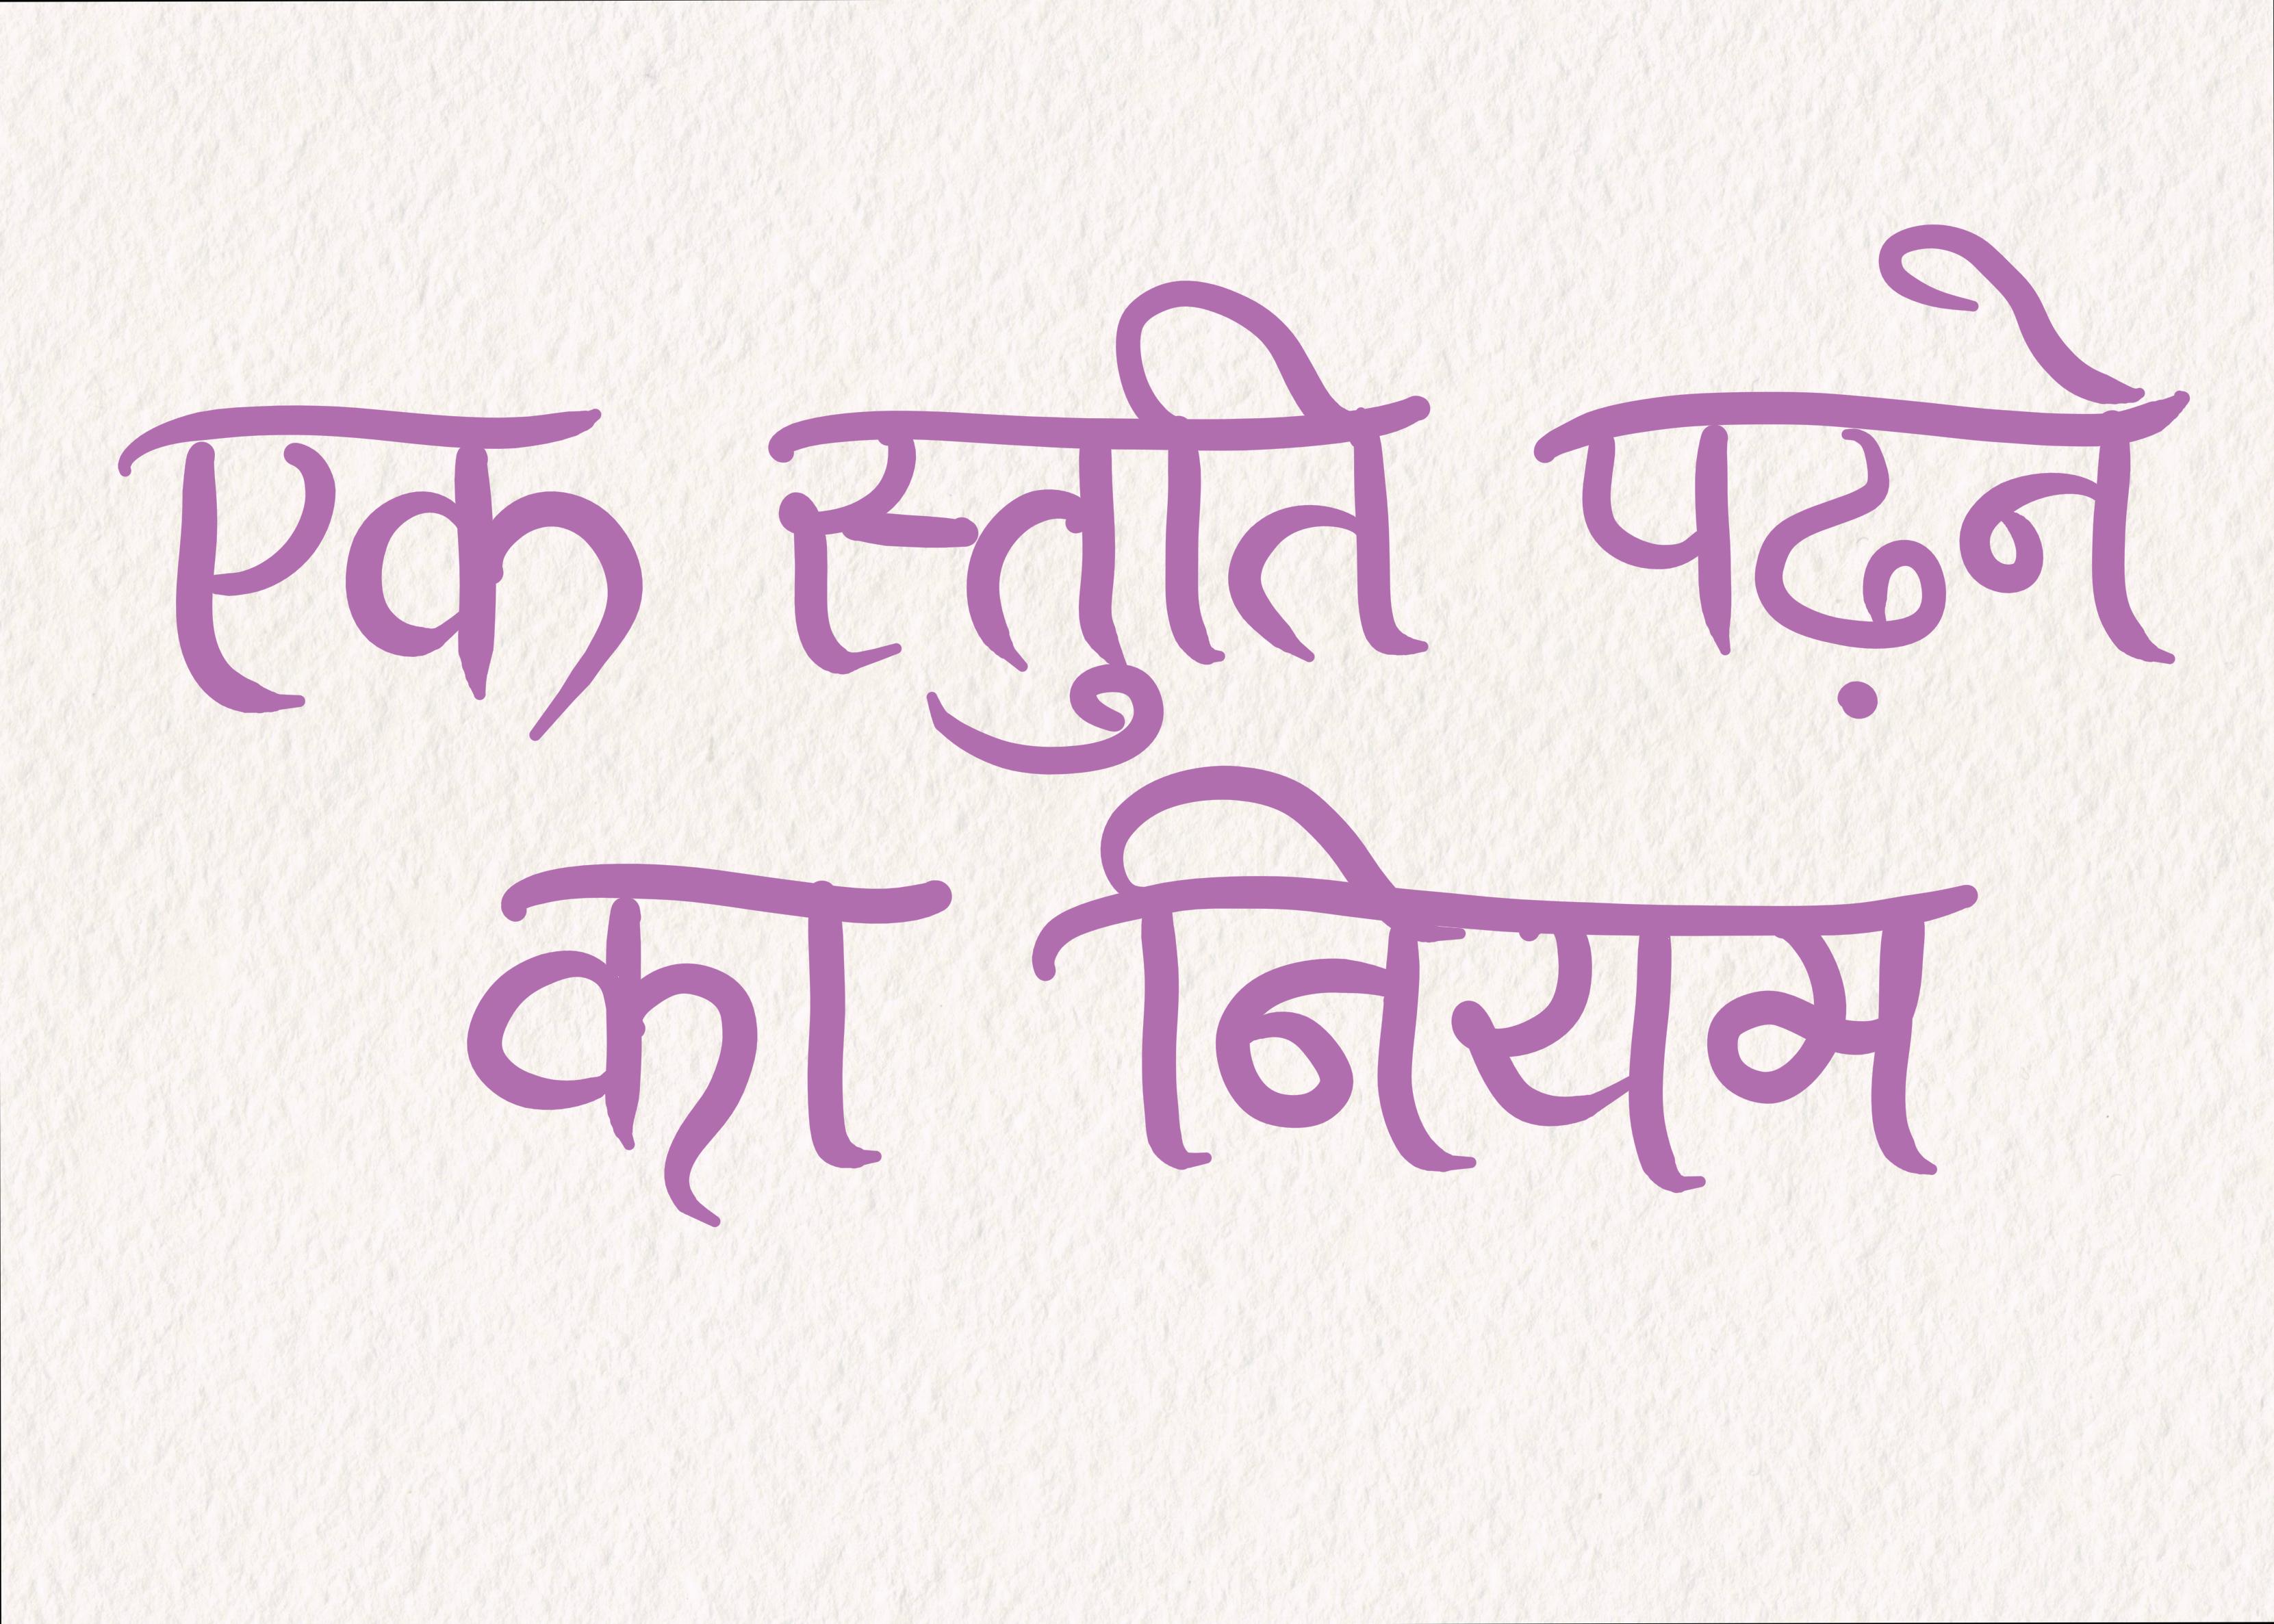 एक स्तुति पढ़ने
का नियम